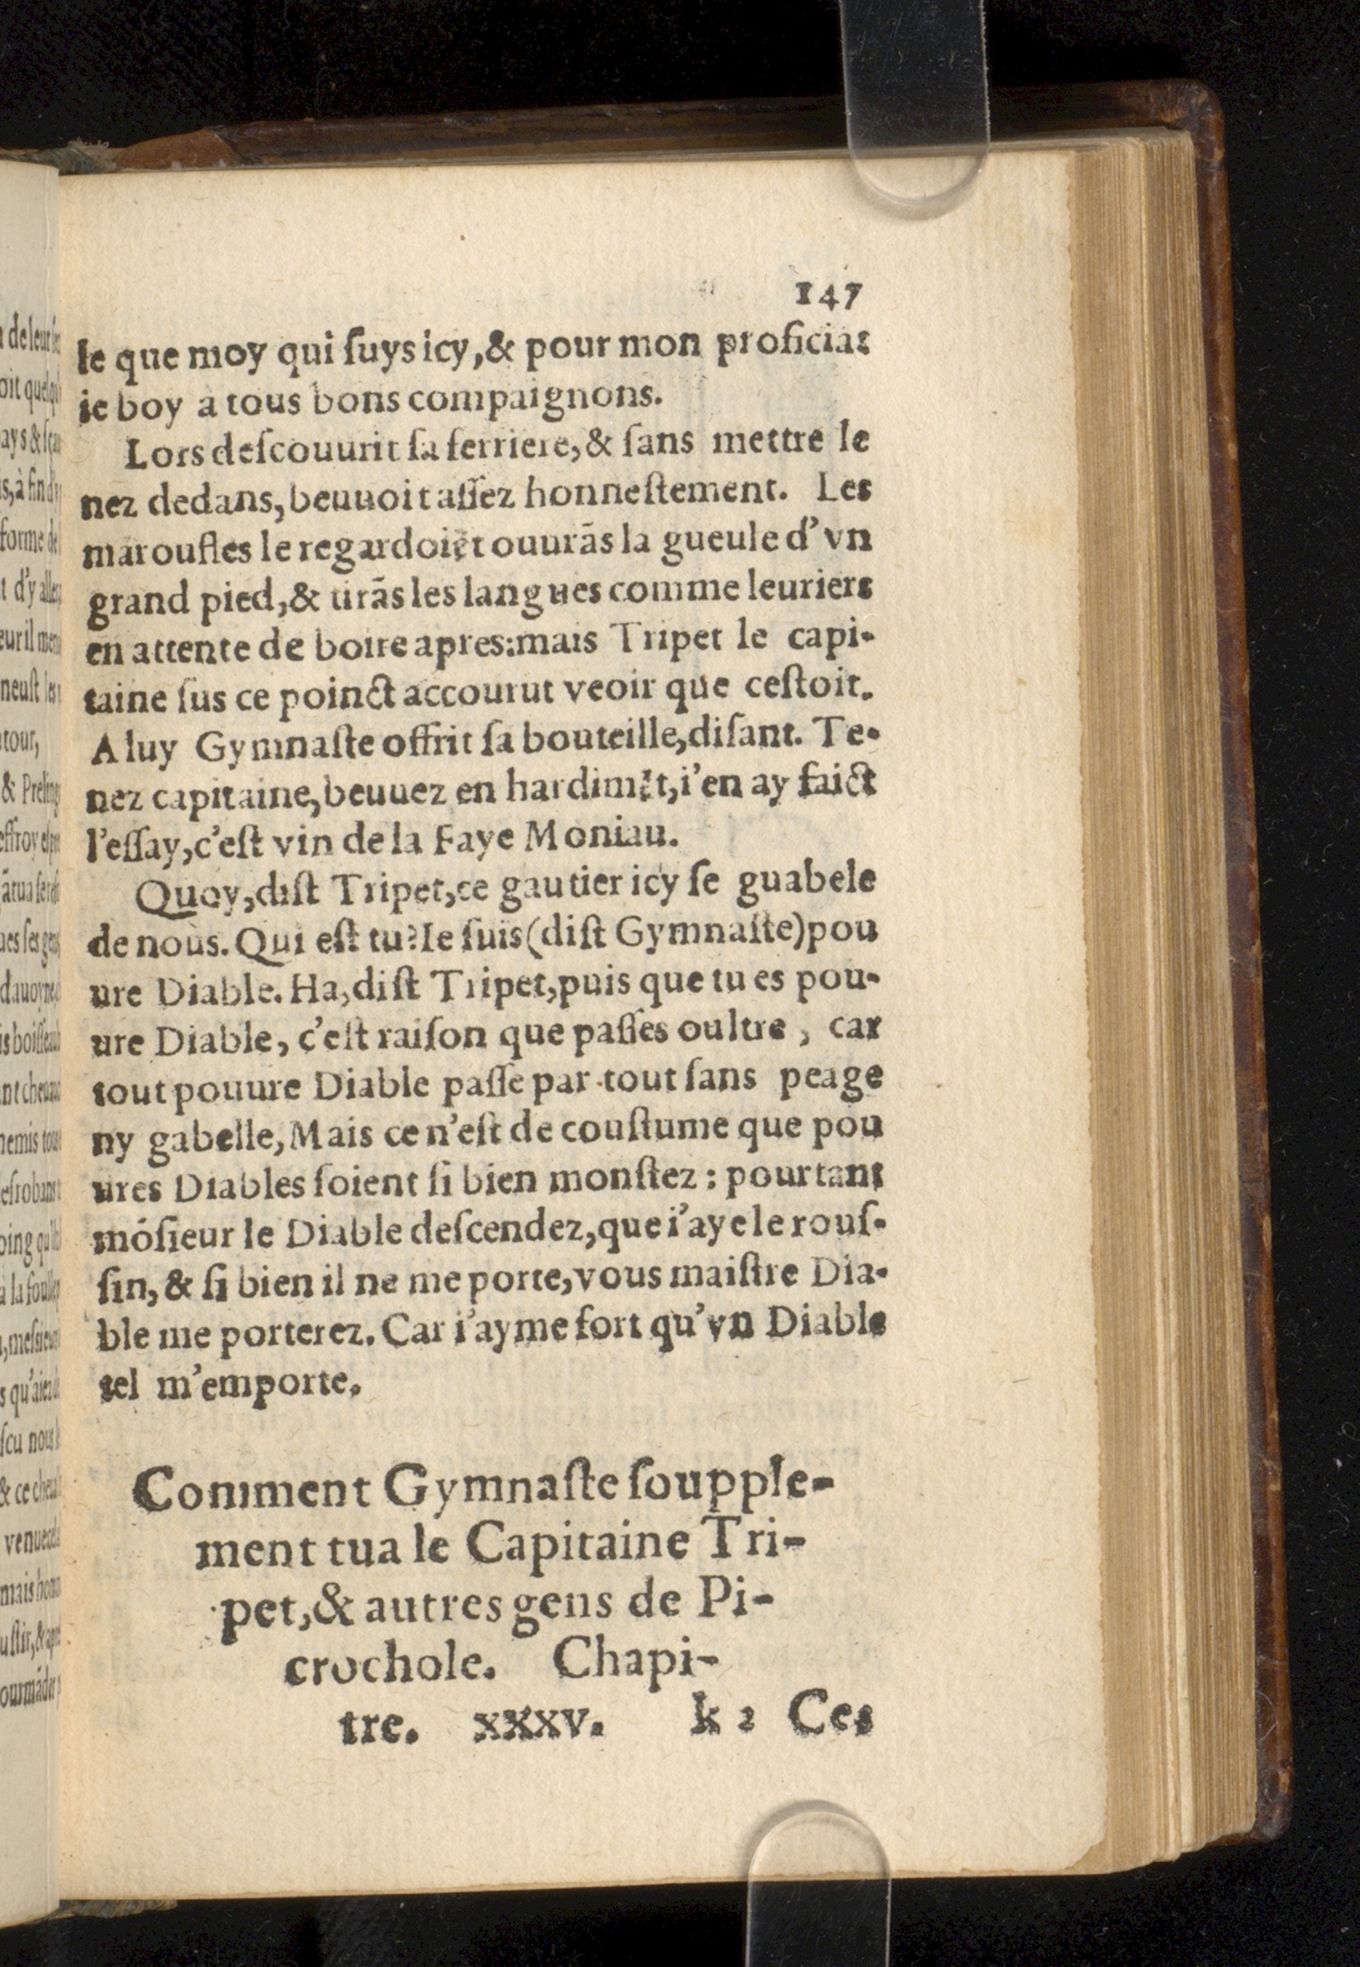 147
le que moy qui ſuys icy, & pour mon proficiat
ie boy a tous bons compaignons.
Lors deſcouurit ſa ferriere, & ſans mettre le
nez dedans, beuuoit aſſez honneſtement. Les
maroufles le regardoiẽt ouurãs la gueule d'vn
grand pied, & tirãs les langues comme leuriers
en attente de boire apres: mais Tripet le capi-
taine ſus ce poinct accourut veoir que ceſtoit.
A luy Gymnaſte offrit ſa bouteille, diſant. Te-
nez capitaine, beuuez en hardimẽt, i'en ay faict
l'eſſay, c'eſt vin de la Faye Moniau.
Quoy, diſt Tripet, ce gautier icy ſe guabele
de nous. Qui eſt tu? Ie ſuis (diſt Gymnaſte) pou
ure Diable. Ha, diſt Tripet, puis que tu es pou-
ure Diable, c'eſt raiſon que paſſes oultre, car
tout pouure Diable paſſe par tout ſans peage
ny gabelle, Mais ce n'eſt de couſtume que pou
ures Diables ſoient ſi bien monſtez: pourtant
mõſieur le Diable deſcendez, que i'aye le rouſ-
ſin, & ſi bien il ne me porte, vous maiſtre Dia-
ble me porterez. Car i'ayme fort qu'vn Diable
tel m'emporte.
Comment Gymnaſte ſoupple-
ment tua le Capitaine Tri-
pet, & autres gens de Pi-
crochole. Chapi-
tre. xxxv. k 2 Ces